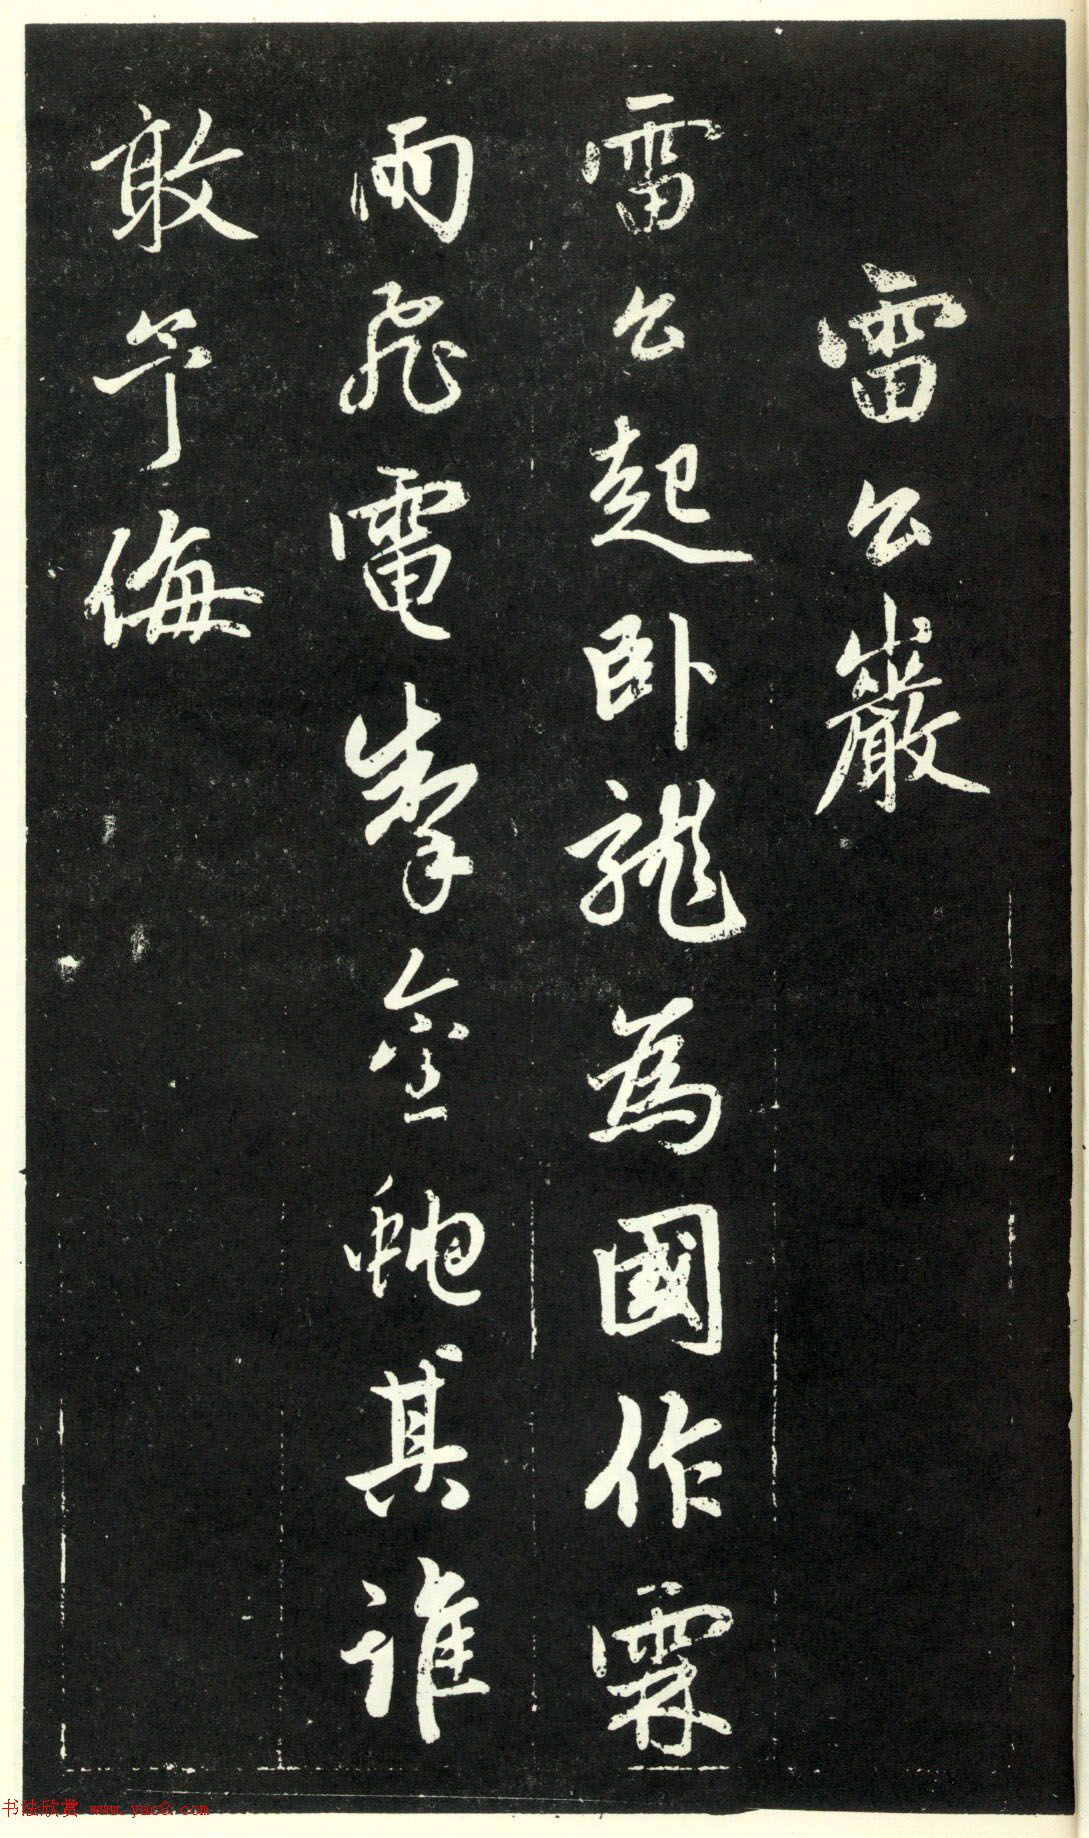 雷公巖
雷公起卧龍為國作霖
雨飛電掣金蛇其誰
敢予侮
书法欣赏 www.yac8.com